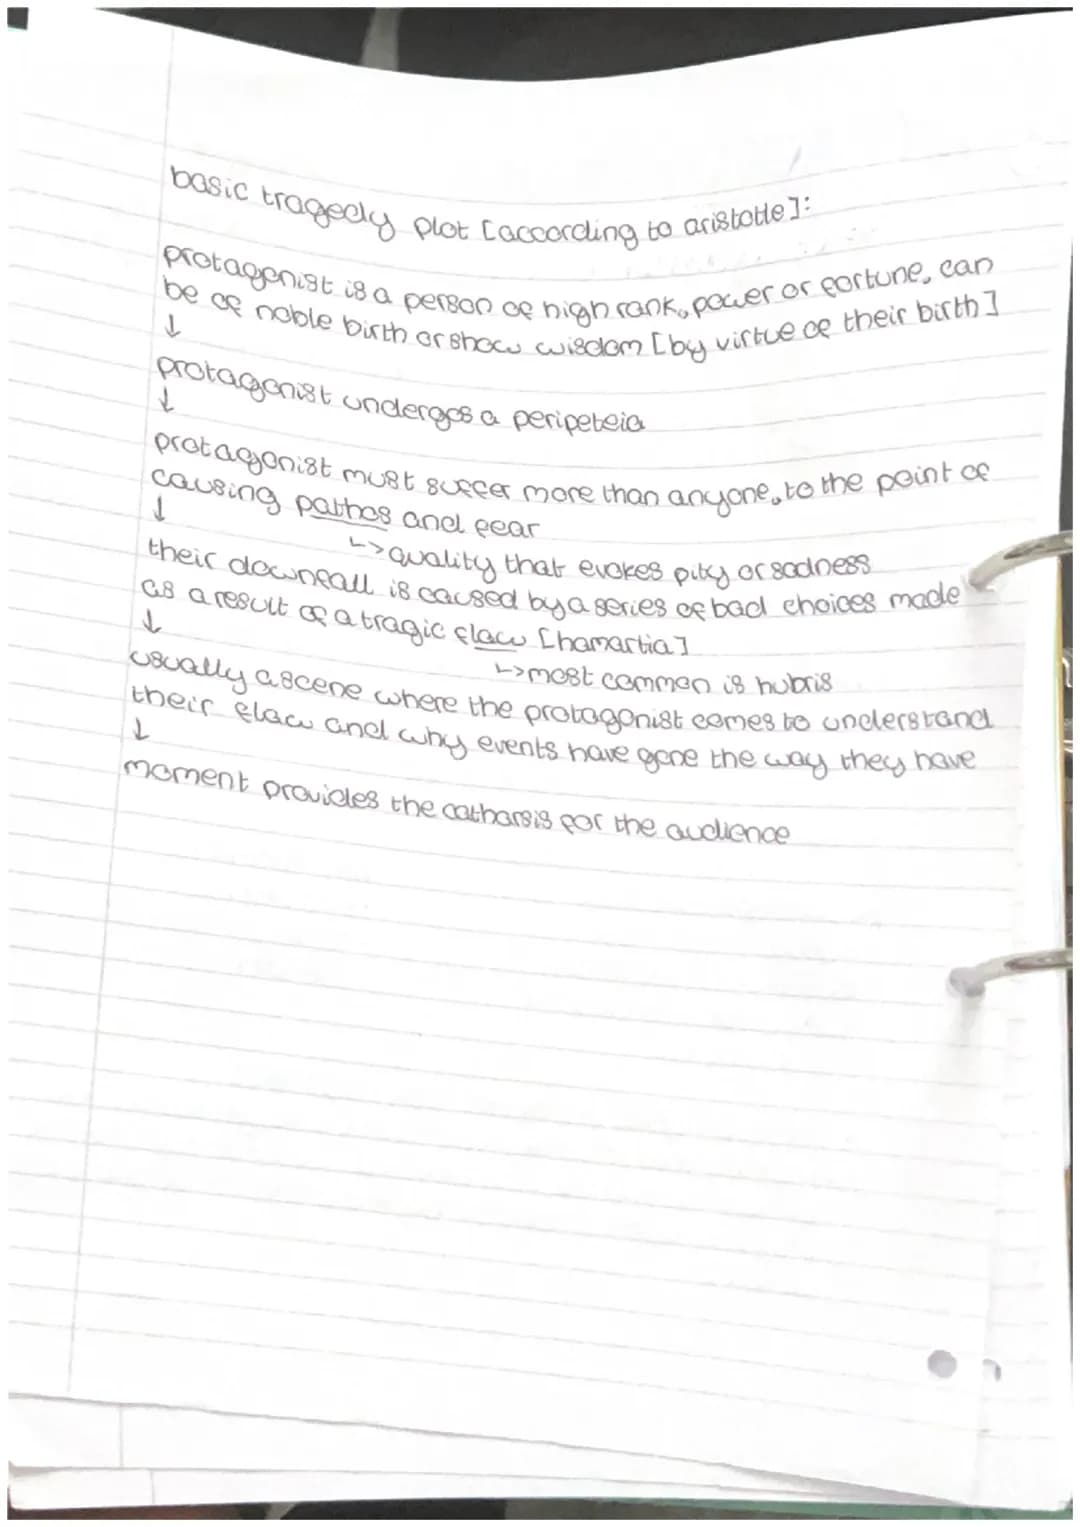 basic tragedy plot [according to aristotle]:
protagonist is a person of high rank, power or fortune, can
be of noble birth or show wisdom [by virtue of their birth]
↓
protagonist undergos a peripeteia
↓
protagonist must suffer more than anyone, to the point of
causing pathos and fear
↓
↳ quality that evokes pity or sadness
their downfall is caused by a series of bad choices made
as a result of a tragic flaw [hamartia]
↓
↳ most common is hubris
usually a scene where the protagonist comes to understand
their flaw and why events have gone the way they have
↓
moment provides the catharsis for the audience